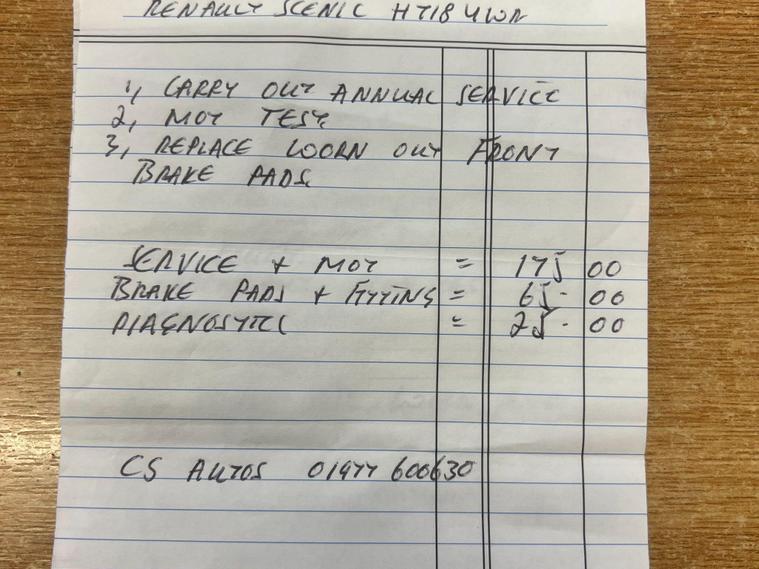 RENAULT SCENIC HT18 UWR
1, CARRY OUT ANNUAL SERVICE
2, MOT TEST
3, REPLACE WORN OUT FRONT
BRAKE PADS.
SERVICE + MOT = 175 00
BRAKE PADS + FITTING = 65 - 00
DIAGNOSTIC = 25 - 00
CS AUTOS 01977 600630